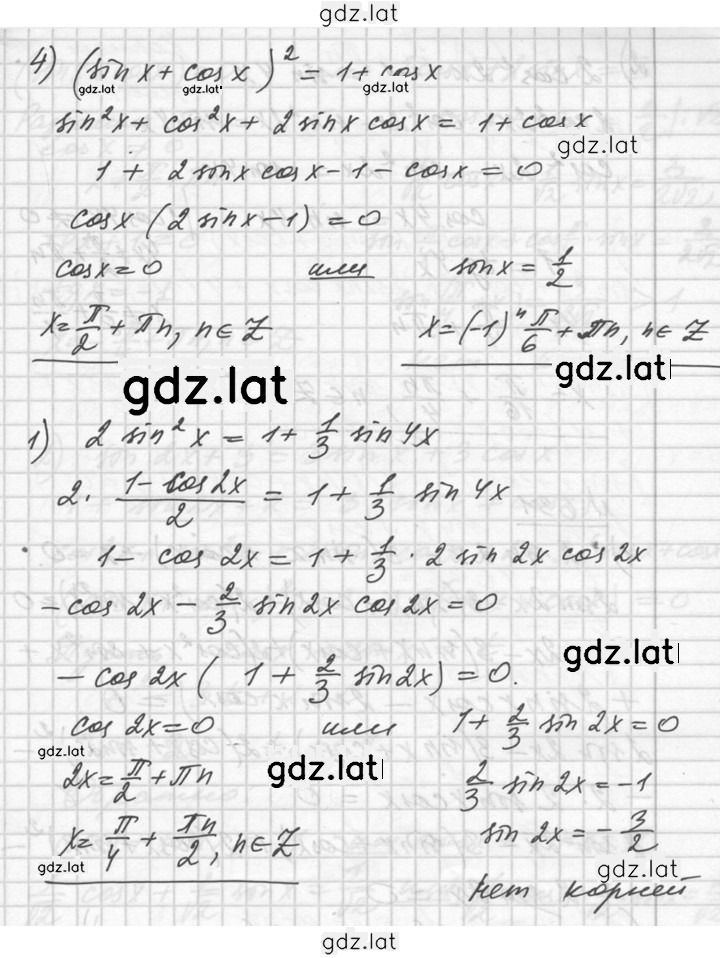 gdz.lat
4) (sin x + cos x)² = 1 + cos x
gdz.lat gdz.lat gdz.lat
sin²x + cos²x + 2 sin x cos x = 1 + cos x
gdz.lat
1 + 2 sin x cos x - 1 - cos x = 0
cos x (2 sin x - 1) = 0
cos x = 0 или sin x = 1/2
x = π/2 + πn, n ∈ Z x = (-1)ⁿ π/6 + πn, n ∈ Z
gdz.lat
gdz.lat
1) 2 sin²x = 1 + 1/3 sin 4x
2 · (1 - cos 2x)/2 = 1 + 1/3 sin 4x
1 - cos 2x = 1 + 1/3 · 2 sin 2x cos 2x
- cos 2x - 2/3 sin 2x cos 2x = 0
gdz.lat
- cos 2x (1 + 2/3 sin 2x) = 0.
cos 2x = 0 или 1 + 2/3 sin 2x = 0
gdz.lat
gdz.lat
2x = π/2 + πn 2/3 sin 2x = -1
x = π/4 + πn/2, n ∈ Z sin 2x = - 3/2
gdz.lat gdz.lat
нет корней
gdz.lat